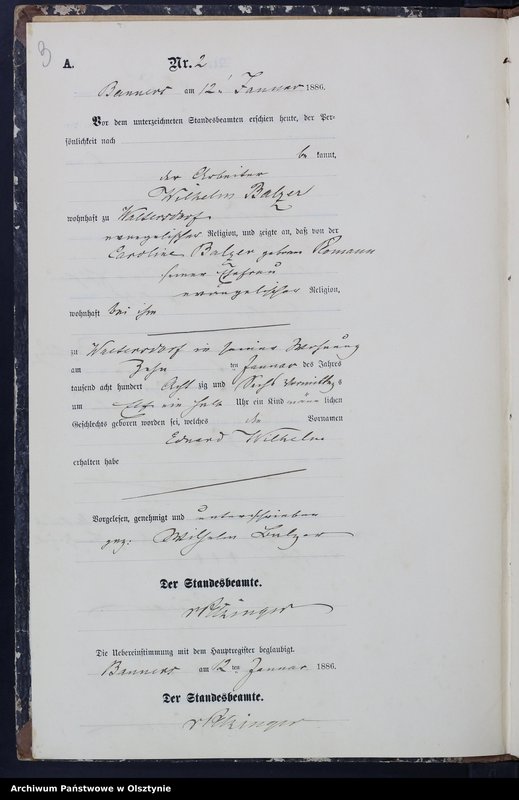 3
A. Nr. 2
Banners am 12. Januar 1886.
Vor dem unterzeichneten Standesbeamten erschien heute, der Per-
sönlichkeit nach
be kannt,
der Arbeiter
Wilhelm Balzer
wohnhaft zu Waltersdorf
evangelischer Religion, und zeigte an, daß von der
Caroline Balzer geborne Romann
seiner Ehefrau
evangelischer Religion,
wohnhaft bei ihm
zu Waltersdorf in seiner Wohnung
am Zehn ten Januar des Jahres
tausend acht hundert Acht zig und Sechs Vormittag s
um Elf ein halb Uhr ein Kind männ lichen
Geschlechts geboren worden sei, welches die Vornamen
Eduard Wilhelm
erhalten habe
Vorgelesen, genehmigt und unterschrieben
gez: Wilhelm Balzer
Der Standesbeamte.
Die Uebereinstimmung mit dem Hauptregister beglaubigt.
Banners am 12 ten Januar 1886.
Der Standesbeamte.
Archiwum Państwowe w Olsztynie